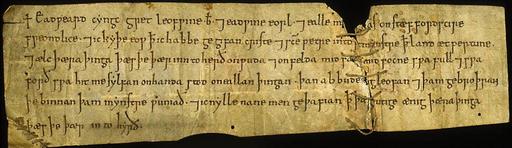 ✝ Eadƿeard cyngc gret Leofƿine b. ⁊ Eadƿine eorl ⁊ ealle m as on stæffordscire
freondlice. ⁊ ic kyþe eoƿ ꝥ ic habbe gegyfan criste ⁊ sc̄e petre into mynstre ꝥ land æt pertune.
⁊ ælc þæra þinga þæs þe þær inn to hyrð on ƿuda ⁊ on felda mid socne sƿa full ⁊ sƿa
forð sƿa hit me sylfan on handa stod on eallan þingan. þan abbude gleofan ⁊ þam gebroþran
þe binnan þam mynstre ƿuniað. ⁊ ic nylle nane men geþafian ꝥ utige ænig þæra þinga
þæs þe þær in to hyrð.